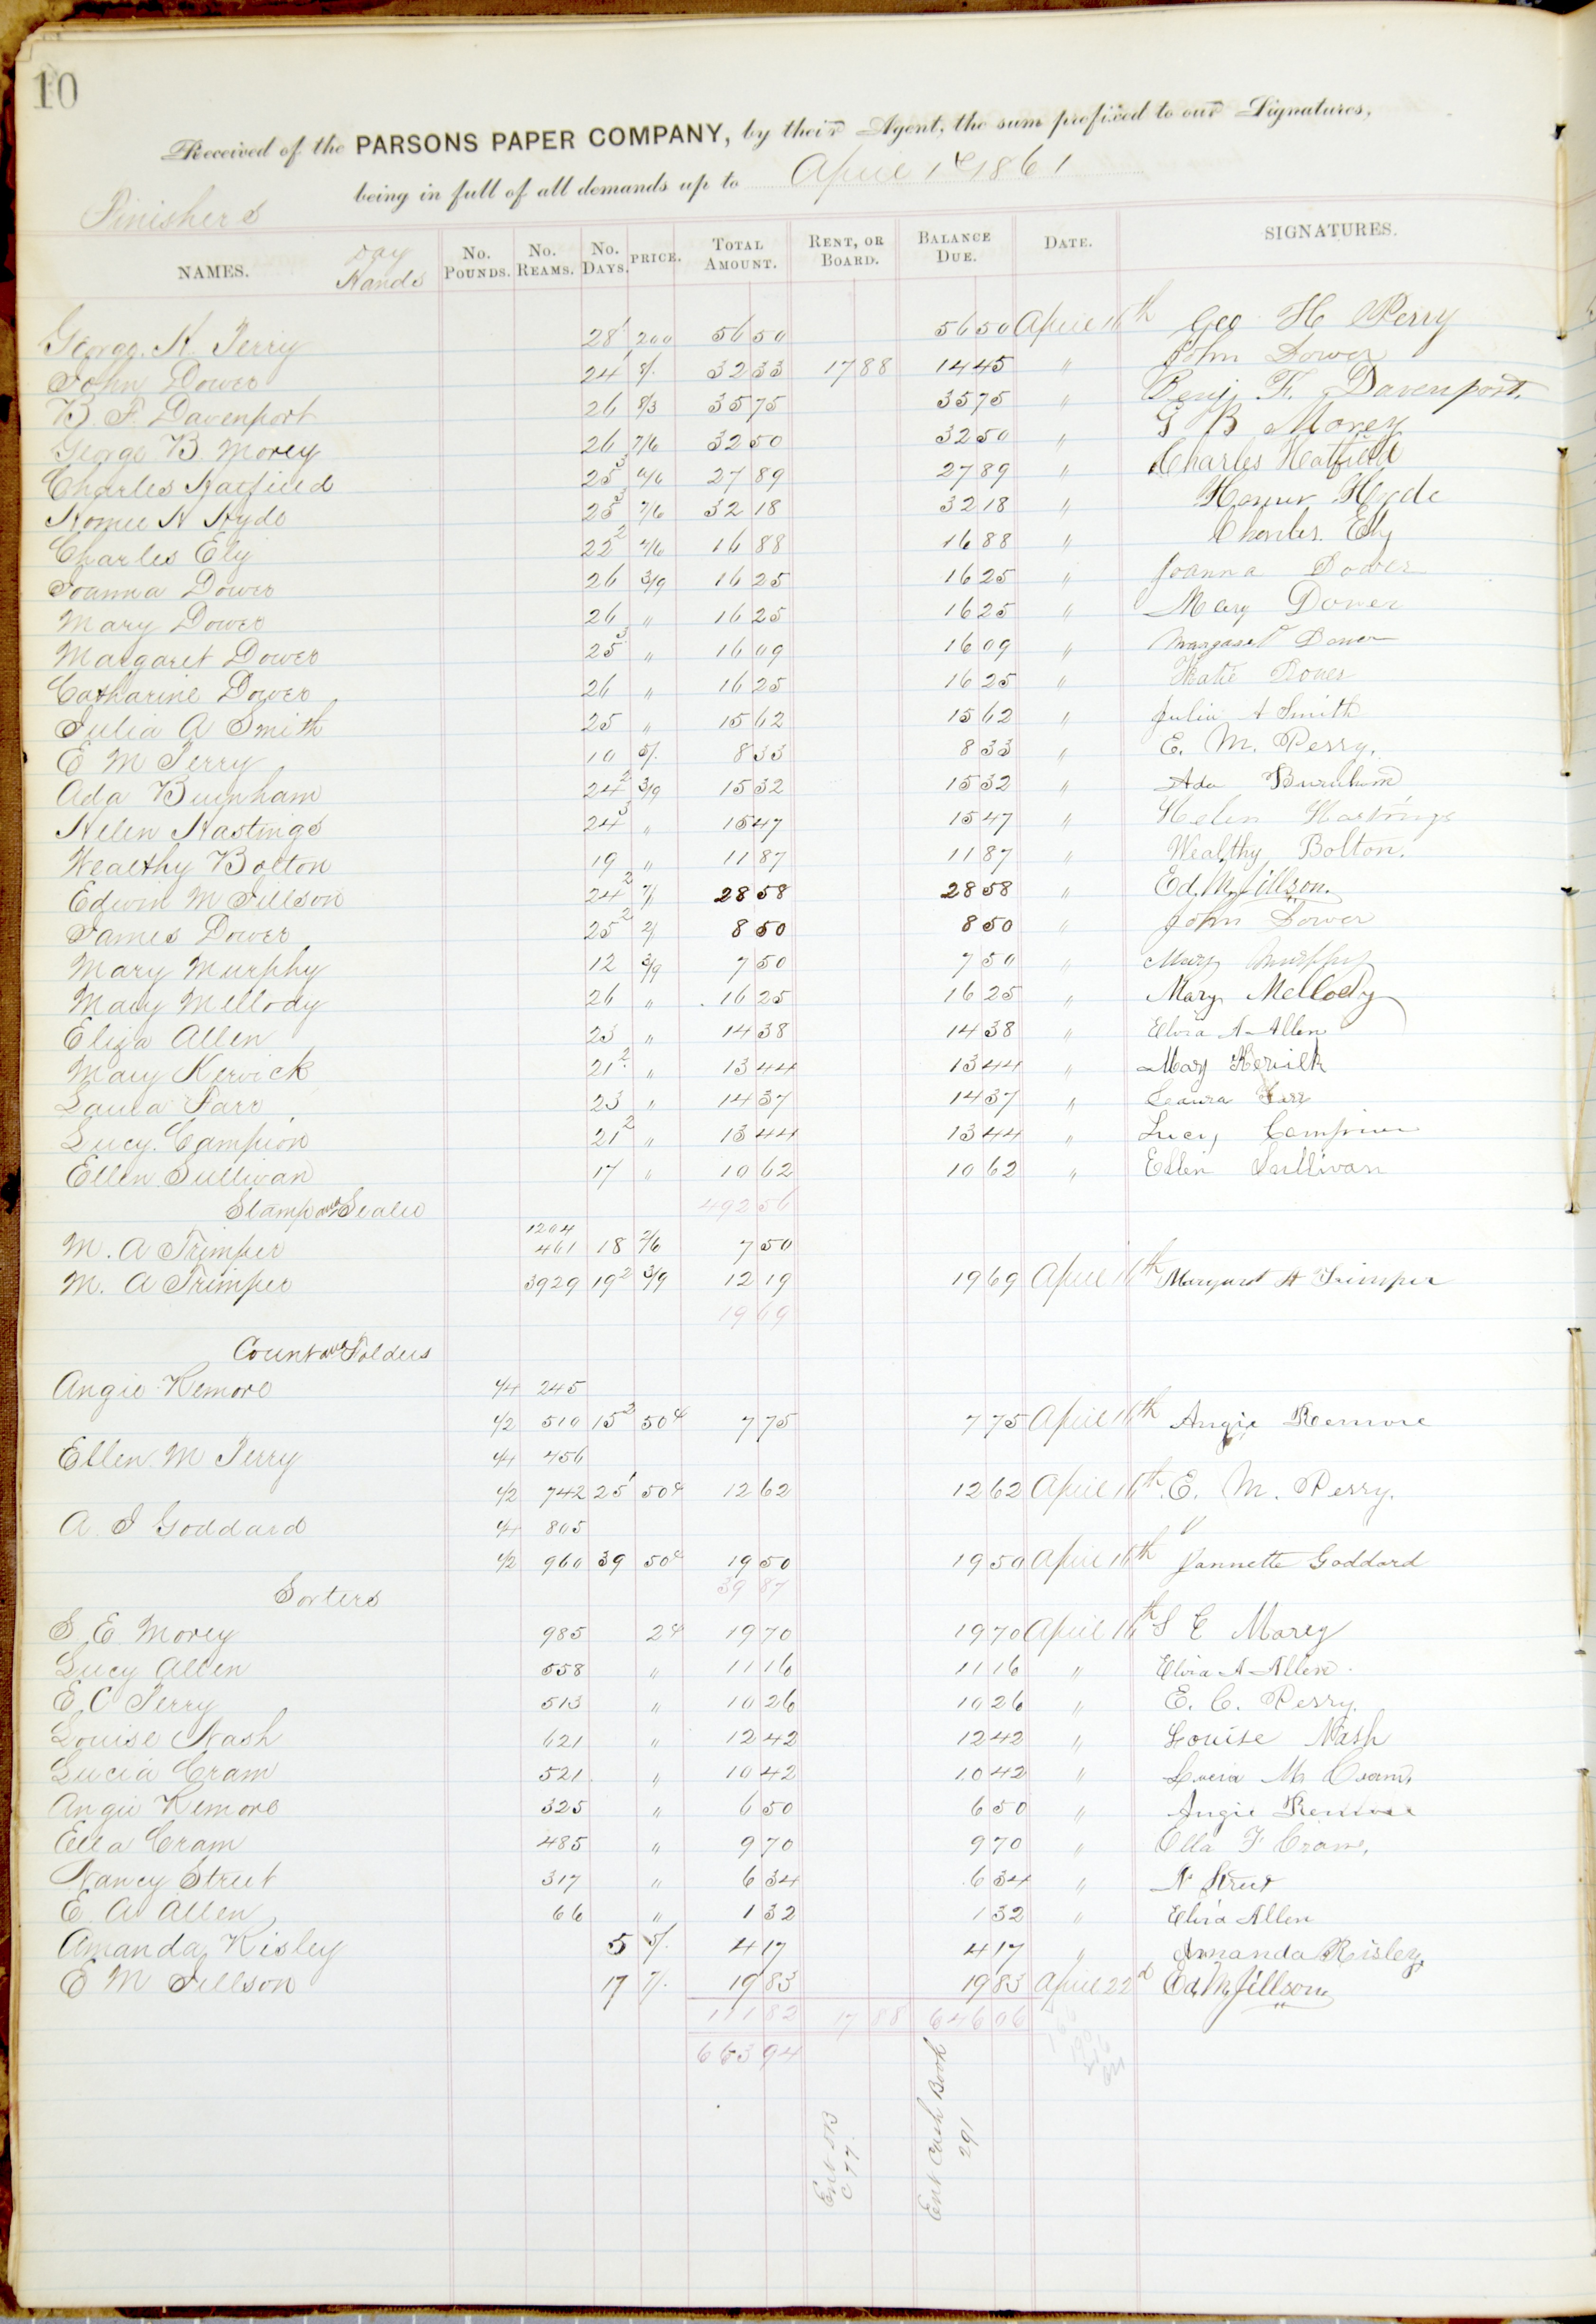 10
Received of the PARSONS PAPER COMPANY, by their Agent, the sum prefixed to our Signatures,
being in full of all demands up to April 1st 1861
Finishers
NAMES. Day Hands No. POUNDS. No. REAMS. No. DAYS. PRICE. TOTAL AMOUNT. RENT, OR BOARD. BALANCE DUE. DATE. SIGNATURES.
George H. Perry 28 1 200 56 50 56 50 April 16th Geo H Perry
John Dower 24 1 8/. 32 33 17 88 14 45 " John Dower
B. F. Davenport 26 8/3 35 75 35 75 " Benj. F. Davenport.
George B Morey 26 7/6 32 50 32 50 " G B Morey
Charles Hatfield 25 3 6/6 27 89 27 89 " Charles Hatfield
Homer H Hyde 25 3 7/6 32 18 32 18 " Homer Hyde
Charles Ely 22 2 16 88 16 88 " Charles. Ely
Joanna Dower 26 3/9 16 25 16 25 " Joanna Dower
Mary Dower 26 " 16 25 16 25 " Mary Dower
Margaret Dower 25 3 " 16 09 16 09 " Margaret Dower
Catharine Dower 26 " 16 25 16 25 " Katie Dower
Julia A Smith 25 " 15 62 15 62 " Julia A Smith
E M Perry 10 5/. 8 33 8 33 " E. M. Perry.
Ada Burnham 24 2 3/9 15 32 15 32 " Ada Burnham
Helen Hastings 24 3 " 15 47 15 47 " Helen Hastings
Wealthy Bolton 19 " 11 87 11 87 " Wealthy Bolton.
Edwin M Jillson 24 2 7/ 28 58 28 58 " Ed. M. Jillson.
James Dower 25 2 2/ 8 50 8 50 " John Dower
Mary Murphy 12 3/9 7 50 7 50 " Mary Murphy
Mary Mellody 26 " 16 25 16 25 " Mary Mellody
Eliza Allen 23 " 14 38 14 38 " Elvira A Allen
Mary Kervick 21 2 " 13 44 13 44 " Mary Kervick
Laura Farr 23 " 14 37 14 37 " Laura Farr
Lucy Campion 21 2 " 13 44 13 44 " Lucy Campion
Ellen Sullivan 17 " 10 62 10 62 " Ellen Sullivan
Stamp and Sealer 492 56
1204
M. A Trimper 461 18 2/6 7 50
M. A Trimper 3929 19 2 3/9 12 19 19 69 April 16th Margaret A Trimper
19 69
Count and Folders
Angie Remore 4/4 245
4/2 510 15 2 50c 7 75 7 75 April 16th Angie Remore
Ellen M Perry 4/4 456
4/2 742 25 1 50c 12 62 12 62 April 16th E. M. Perry.
A. J Goddard 4/4 805
4/2 960 39 50c 19 50 19 50 April 16th Jannette Goddard
Sorters 39 87
S. E. Morey 985 2c 19 70 19 70 April 16th S E Morey
Lucy Allen 558 " 11 16 11 16 " Elvira A Allen.
E. C Perry 513 " 10 26 10 26 " E. C. Perry.
Louise Nash 621 " 12 42 12 42 " Louise Nash
Lucia Cram 521 " 10 42 10 42 " Lucia M. Cram.
Angie Remore 325 " 6 50 6 50 " Angie Remore
Ella Cram 485 " 9 70 9 70 " Ella F Cram.
Nancy Street 317 " 6 34 6 34 " N Street
E A Allen 66 " 1 32 1 32 " Elvira Allen
Amanda Risley 5 5/. 4 17 4 17 " Amanda Risley.
E M Jillson 17 7/. 19 83 19 83 April 22d Ed. M. Jillson
111 82 17 88 646 06
663 94
Ent Cash Book
291